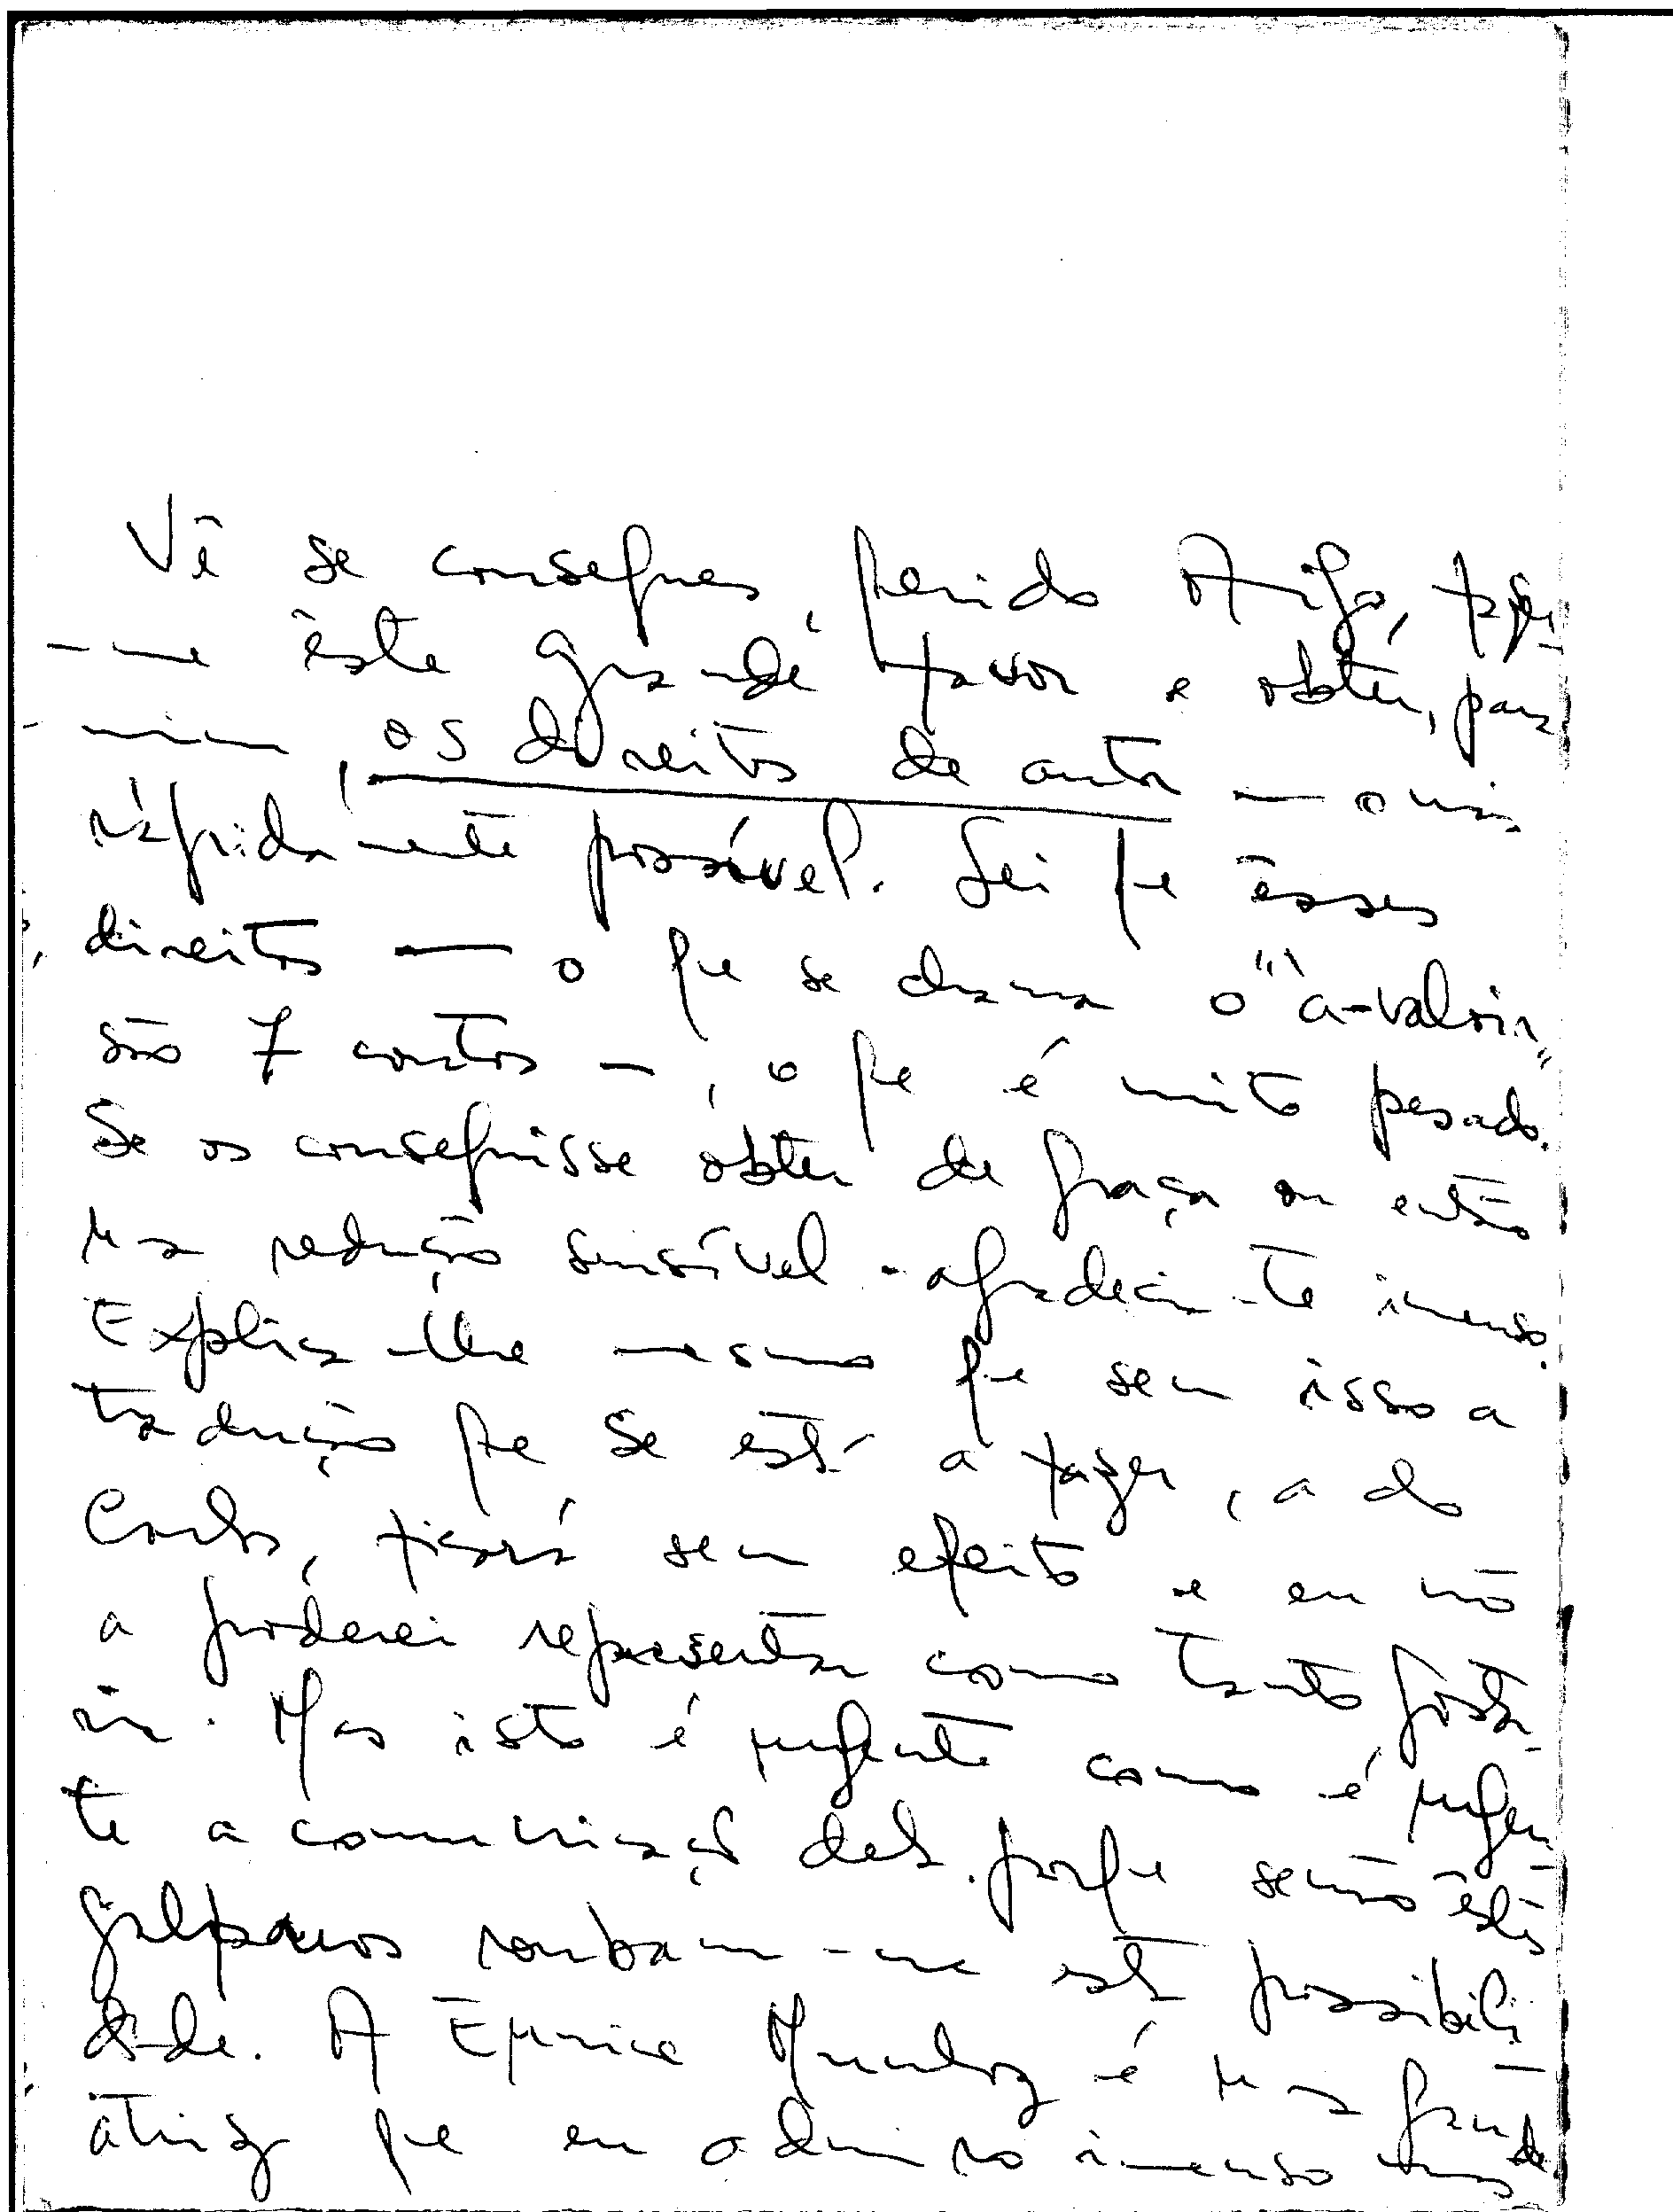 Vê se consegues, querido Amigo, fazer-
-me êste grande favor e obter, para
mim, os direitos de autor — o mais
ràpidamente possível. Sei que êsses
direitos — o que se chama o "à-valoir"
são 7 contos —, o que é muito pesado.
Se os conseguisse obter de graça ou então
uma redução sensível - agradecia-te imenso.
Explica-lhe mesmo que sem isso a
tradução que se está a fazer, a do
Carlos, ficará sem efeito e eu não
a poderei representar como tanto gosta-
ria. Mas isto é urgente como é urgen-
te a comunicação dela. porque senão êstes
galopanos roubam-me esta possibili-
dade. A Eunice Munhoz é uma grande
atriz que eu admiro imenso mas